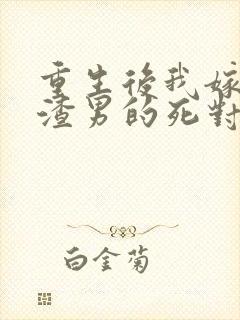 重生後我嫁
渣男的死對
白金菊